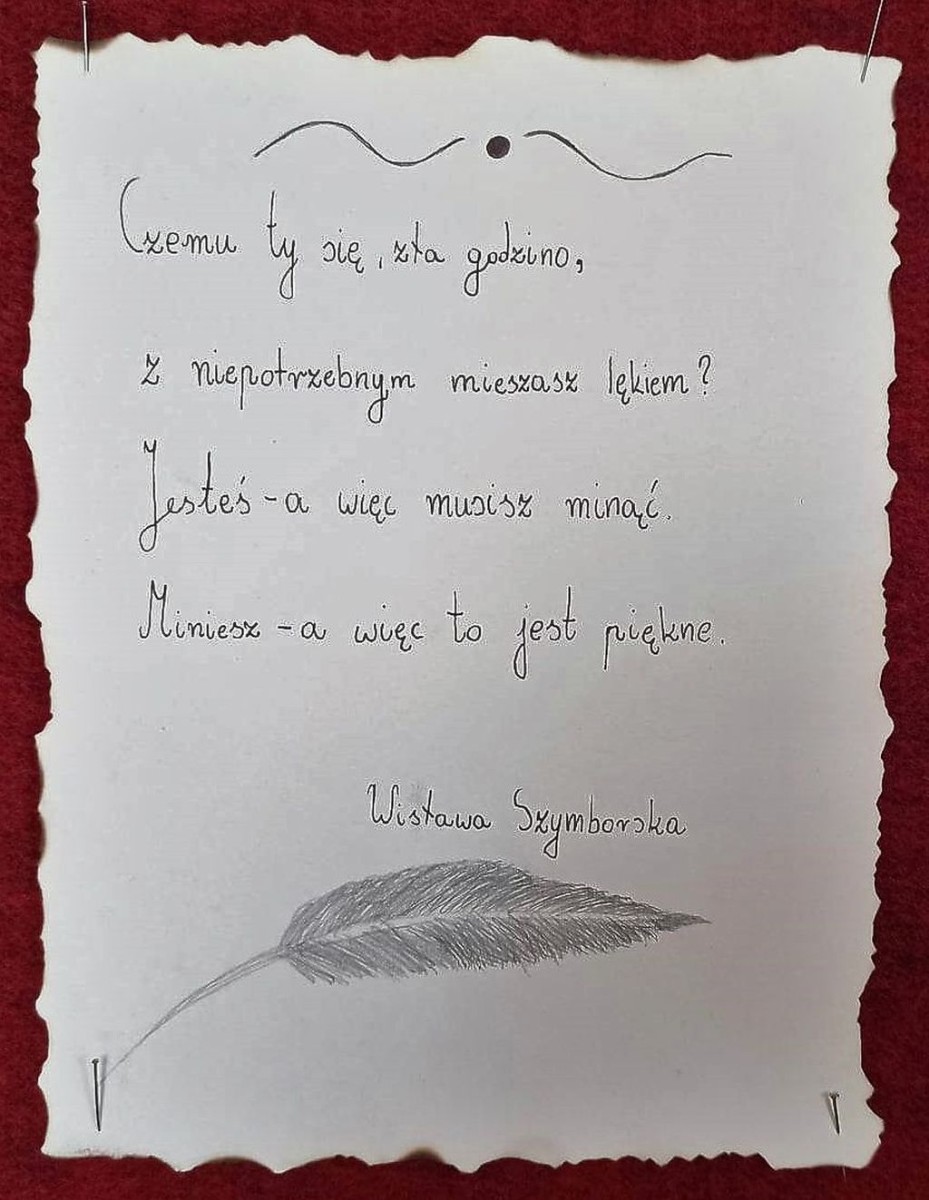 Czemu ty się, zła godzino,
z niepotrzebnym mieszasz lękiem?
Jesteś - a więc musisz minąć.
Miniesz - a więc to jest piękne.
Wisława Szymborska